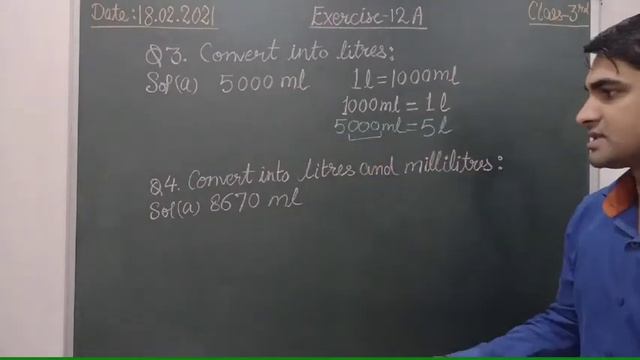 Date:18.02.2021 Exercise-12A Class-3rd
Q3. Convert into litres:
Sol(a) 5000 ml 1l = 1000ml
1000ml = 1l
5000ml = 5l
Q4. Convert into litres and millilitres:
Sol(a) 8670 ml